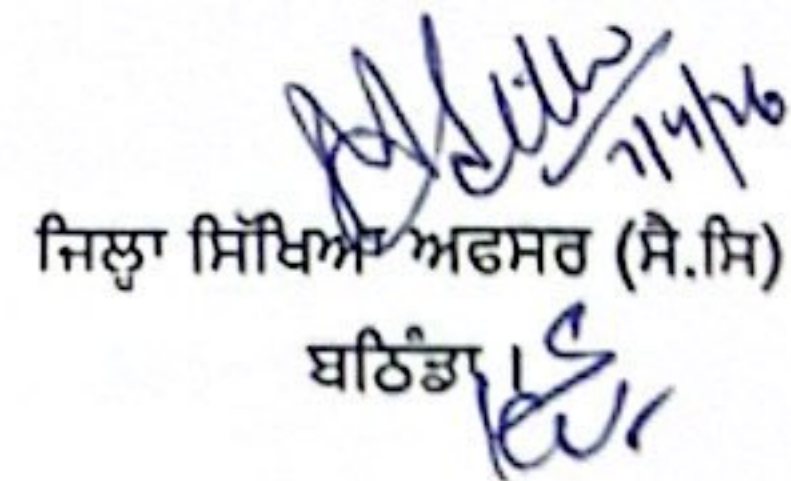 7/4/26
ਜਿਲ੍ਹਾ ਸਿੱਖਿਆ ਅਫਸਰ (ਸੈ.ਸਿ)
ਬਠਿੰਡਾ ।